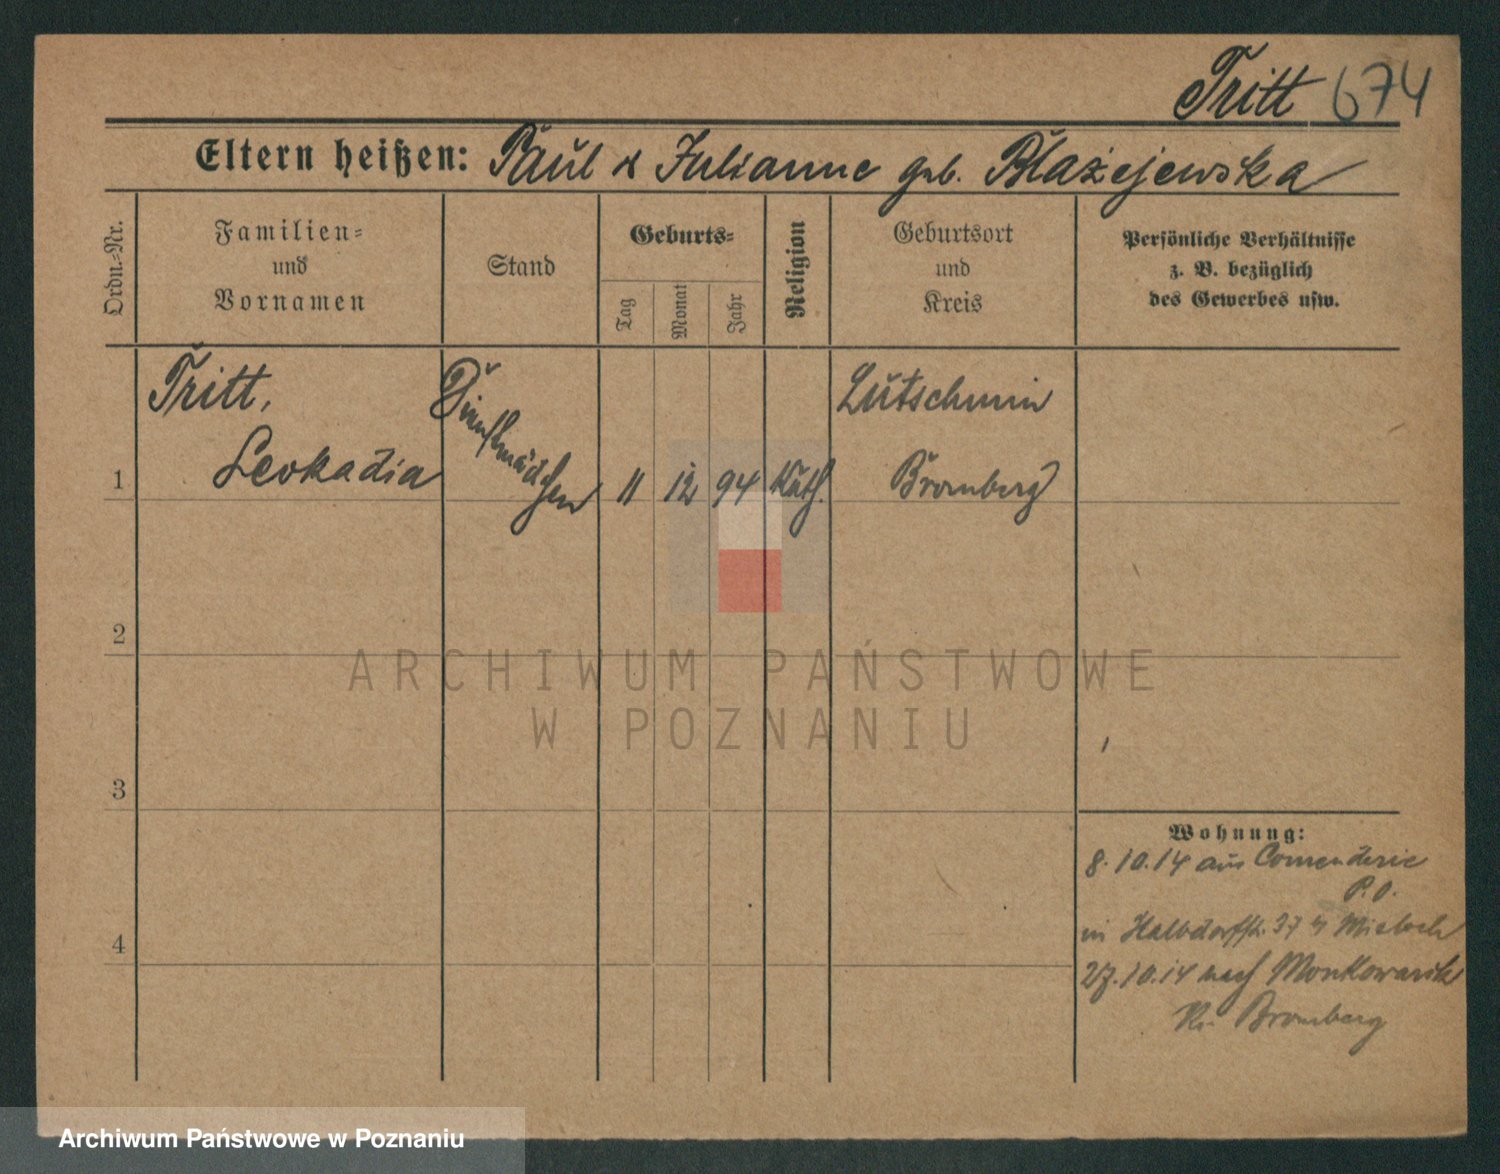 Tritt 674
Eltern heißen: Paul & Julianne geb. Błażejewska
Ordn.-Nr.
Familien-
und
Vornamen
Stand
Geburts-
Tag
Monat
Jahr
Religion
Geburtsort
und
Kreis
Persönliche Verhältnisse
z. B. bezüglich
des Gewerbes usw.
1
Tritt,
Leokadia
Dienstmädchen
11
12
94
Kath.
Lutschmin
Bromberg
2
3
4
Wohnung:
8.10.14 aus Comenderie
P.O.
in Halbdorfstr. 37 Mieloch
27.10.14 nach Monkowarsk
Kr. Bromberg
ARCHIWUM PAŃSTWOWE
W POZNANIU
Archiwum Państwowe w Poznaniu